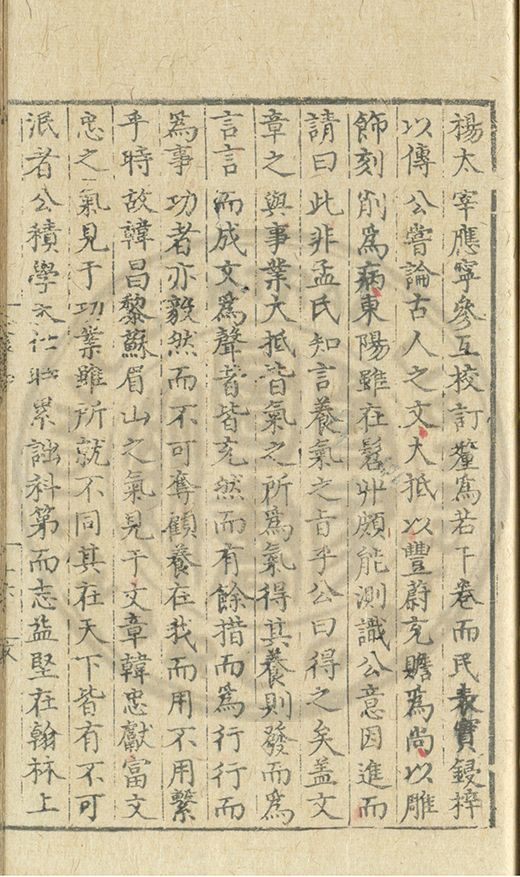 楊太宰應寧參互校訂釐爲若干卷而民表實鋟梓
以傳公嘗論古人之文大抵以豐蔚充贍爲尚以雕
飾刻削爲病東陽雖在髫丱頗能測識公意因進而
請曰此非孟氏知言養氣之旨乎公曰得之矣盖文
章之與事業大抵皆氣之所爲氣得其養則發而爲
言言而成文爲聲者皆充然而有餘措而爲行行而
爲事功者亦毅然而不可奪顧養在我而用不用繫
乎時故韓昌黎蘇眉山之氣見于文章韓忠獻富文
忠之氣見于功業雖所就不同其在天下皆有不可
泯者公積學文累詘科第而志益堅在翰林上